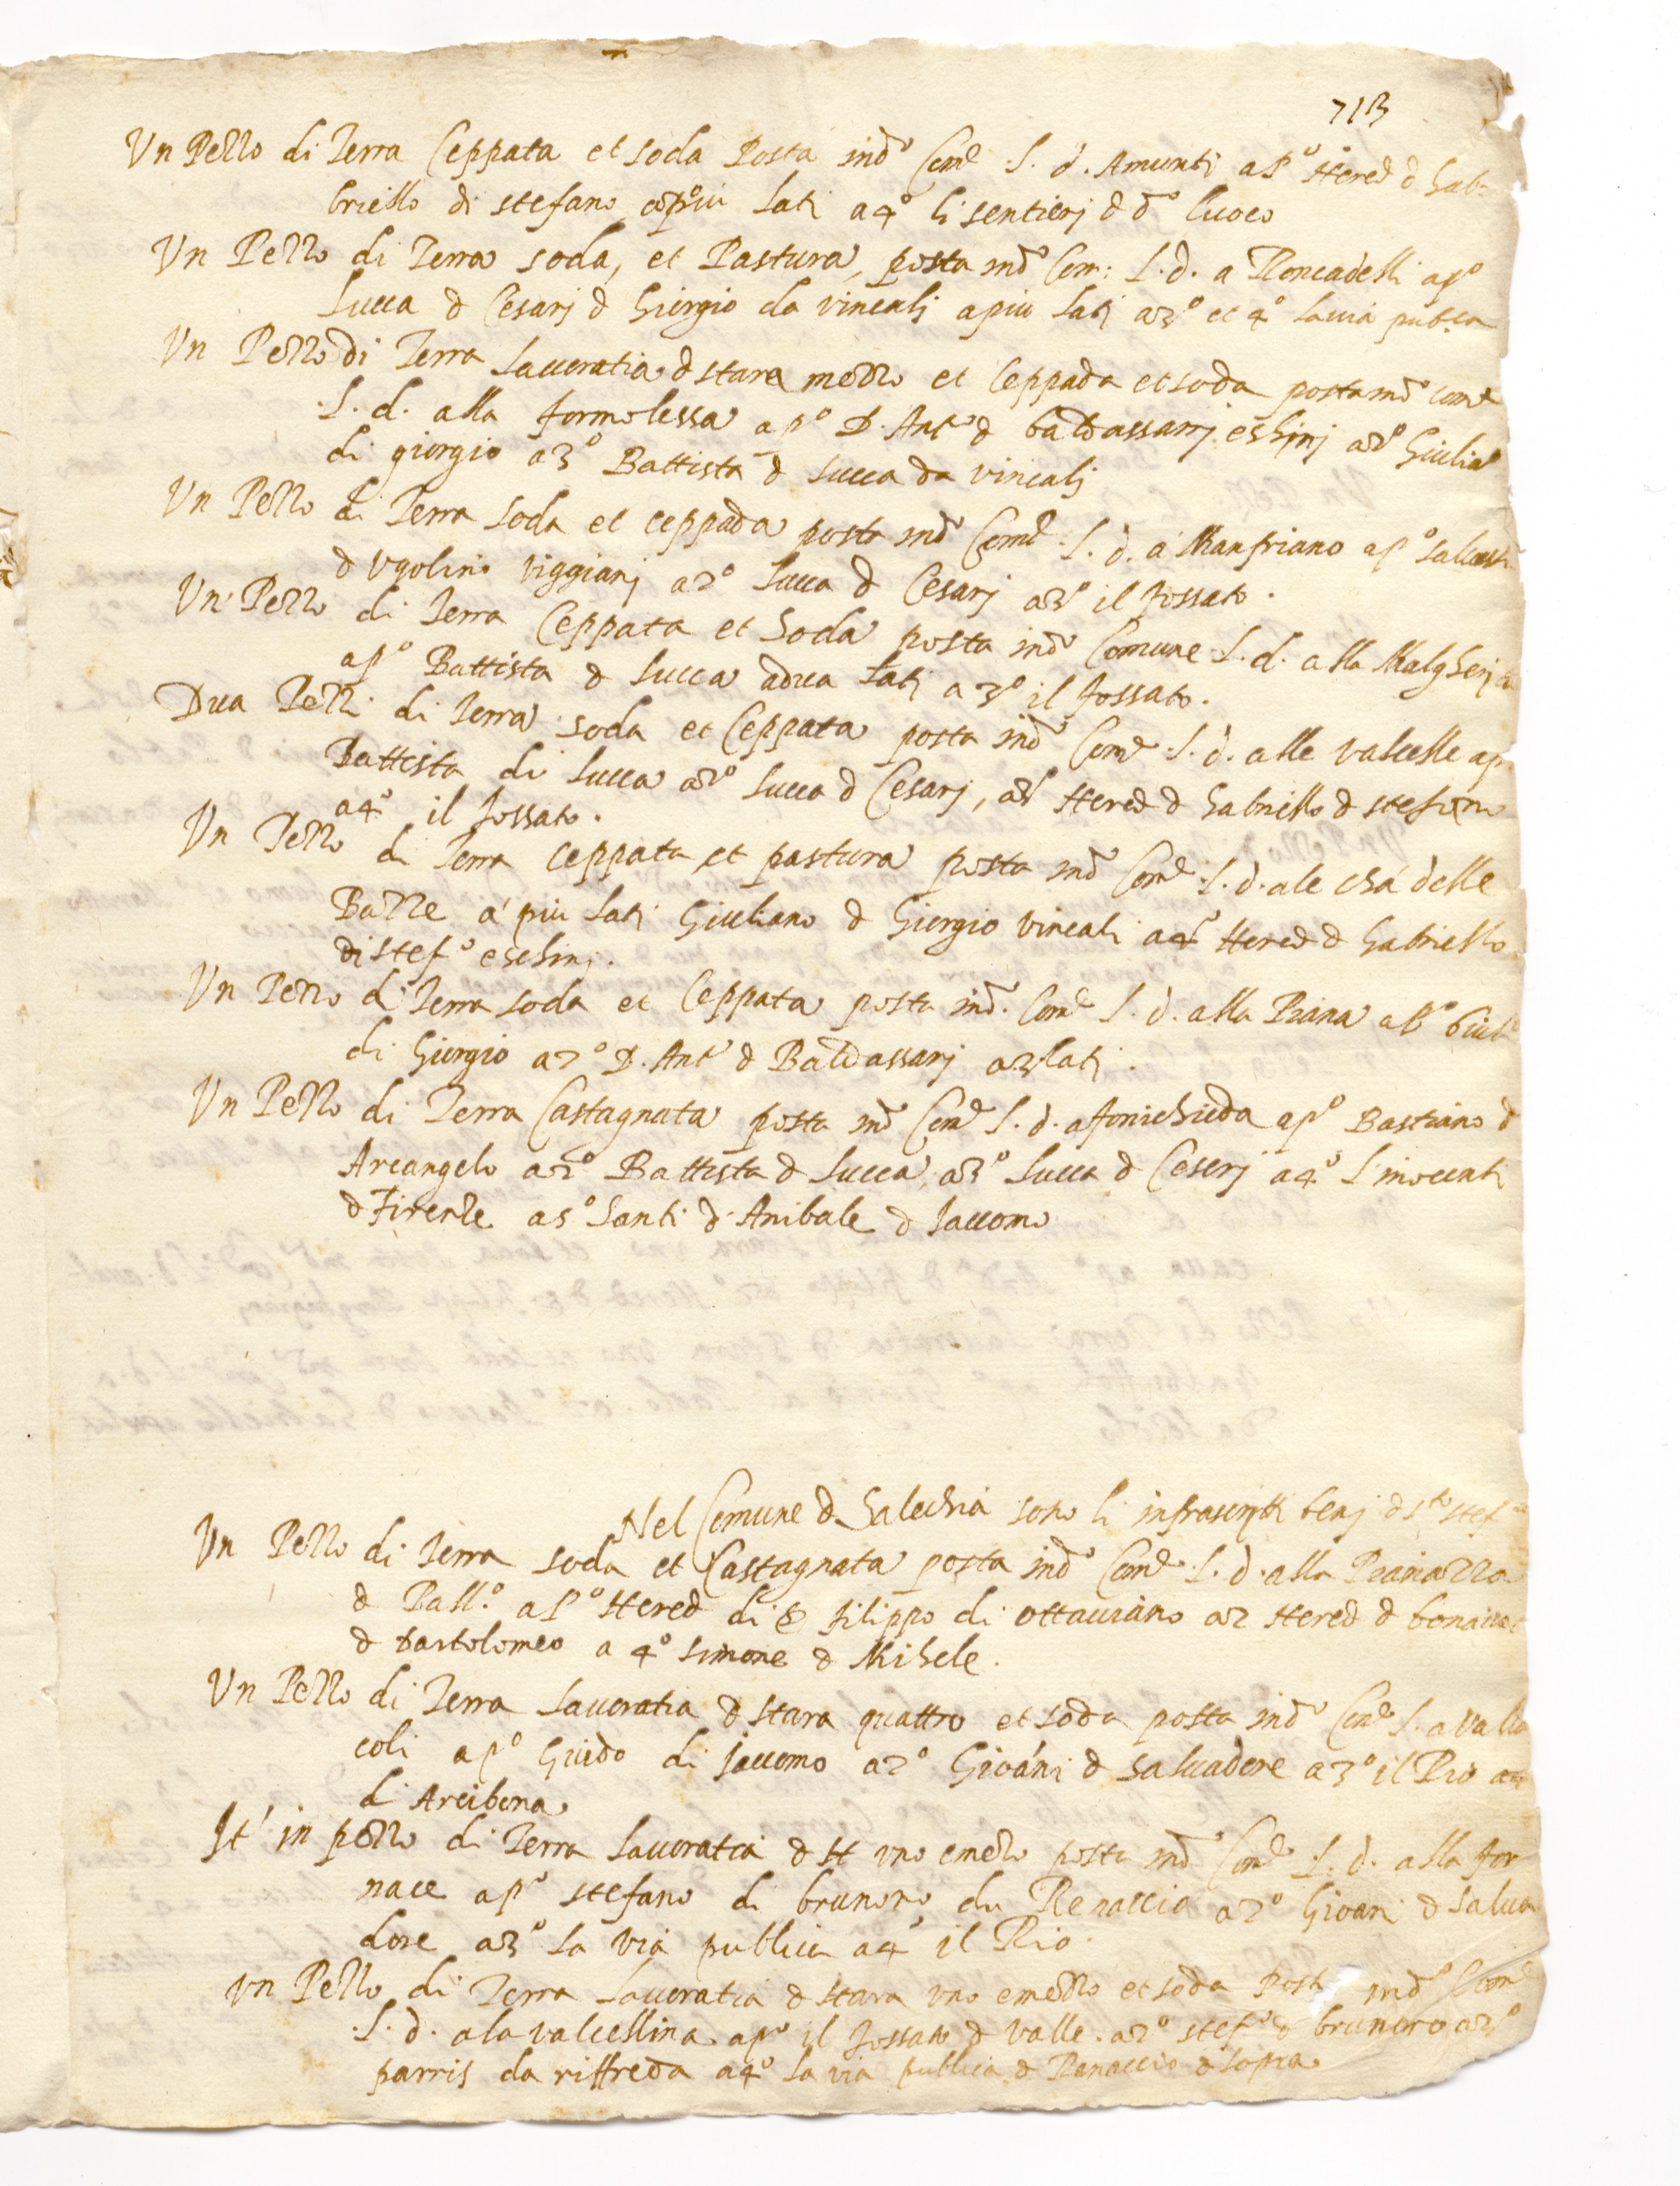 713
Un Pezzo di Terra Ceppata et soda Posta in d.º Com.e l. d. Amunti a p.º Hered d Gab-
briello di stefano a più lati a 4º li sentierj d d.º luoco
Un Pezzo di Terra soda, et Pastura posta in d.º Com: l. d. a Roncadelli a pº
Lucca d Cesarj d Giorgio da vincalj a più latj a 3º et 4º la via pub.ca
Un Pezzo di Terra lavoratia d stara mezzo et Ceppada et soda posta in d.º com.e
l. d. alla formolessa a pº D. Antº d baldassarrj eschinj a 2º Giulian
di giorgio a 3º Battista d Lucca da vincalj
Un Pezzo di Terra soda et ceppada posta in d.º Com.e l. d. a Manfriano a pº
d Ugolino viggianj a 2º Lucca d Cesarj a 3º il fossato.
Un Pezzo di Terra Ceppata et Soda posta in d.º Comune l. d. alla
a pº Battista d Lucca a dua latj a 3º il fossato.
Dua Pezzi di Terra soda et Ceppata posta in d.º Com.e l. d. alle valcelle a p
Battista di Lucca a 2º Lucca d Cesarj, a 3º Hered d Gabriello d stefano
a 4º il fossato.
Un Pezzo di Terra ceppata et pastura posta in d.º Com.e l. d. ale cha delle
Balze a più lati Giuliano d Giorgio vincali a 4º Hered d Gabriello
di stefº eschinj.
Un Pezzo di Terra soda et Ceppata posta in d.º Com.e l. d. alla Piana a pº Giul
di Giorgio a 2º D. Antº d Baldassarj a 3 latj.
Un Pezzo di Terra Castagnata posta in d.º Com.e l. d. a fonichieda a pº Bastiano d
Arcangelo a 2º Battista d Lucca a 3º Lucca d Ceserj a 4º l'inocenti
d Firenze a 5º Santi d Anibale d Jacomo
Nel Comune d Salechia sono li infrascritti benj d stº stef
Un Pezzo di Terra soda et Castagnata posta in d.º Com.e l. d. alla Pianazza
d Pall.º a pº Hered di filippo di ottaviano a 2 Hered d
d bartolomeo a 4º simone d Michele.
Un Pezzo di Terra lavoratia d stara quattro et soda posta in d.º Com.e l. a valli
coli a pº Guido di Jacomo a 2º Giovàni d salvadore a 3º il Rio a 4
di Arcibona
It' in pezzo di Terra lavoratia d st uno e mezo posta in d.º Com.e l. d. alla for
nace a pº stefano di brunoro da Renaccio a 2º Giovani d Salva
dore a 3º la via publica a 4º il Rio.
un Pezzo di Terra lavoratia d stara uno e mezzo et soda Posta in d.º Com.e
l. d. a la valcellina a pº il fossato d valle. a 2º stefº d brunoro a 3º
parris da riffreda a 4º la via publica d Renaccio d sopra